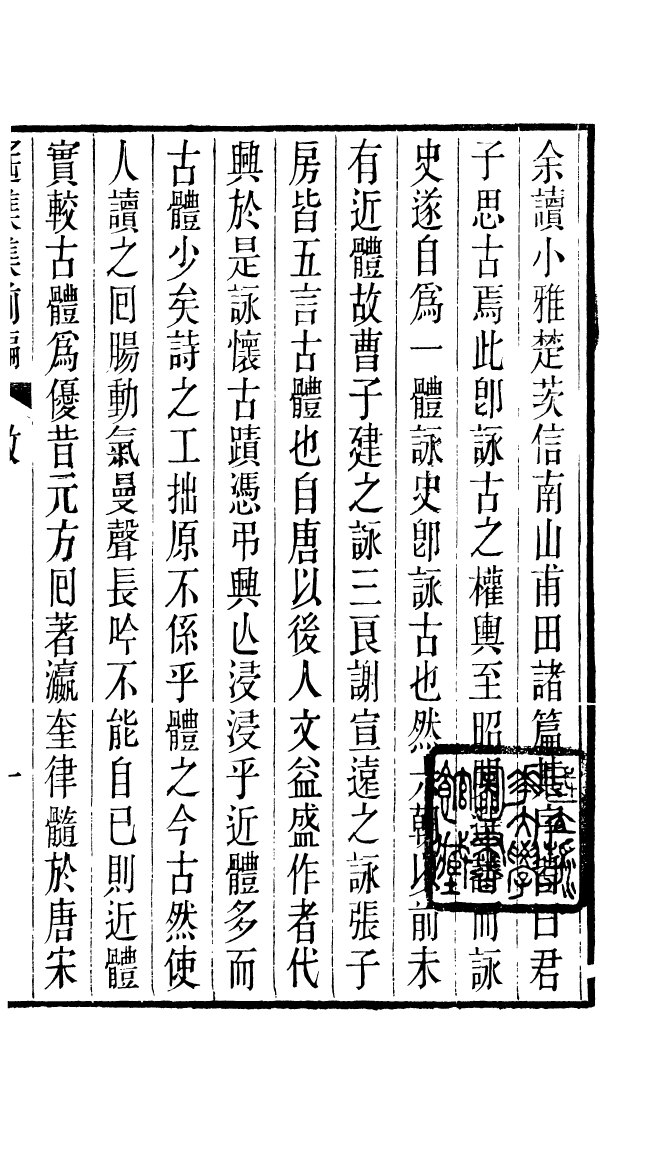 余讀小雅楚茨信南山甫田諸篇其序皆曰君
子思古焉此卽詠古之權輿至昭明選而詠
史遂自爲一體詠史卽詠古也然六朝以前未
有近體故曹子建之詠三良謝宣遠之詠張子
房皆五言古體也自唐以後人文益盛作者代
興於是詠懷古蹟憑弔興亾浸浸乎近體多而
古體少矣詩之工拙原不係乎體之今古然使
人讀之囘腸動氣曼聲長吟不能自已則近體
實較古體爲優昔元方囘著瀛奎律髓於唐宋
集前編